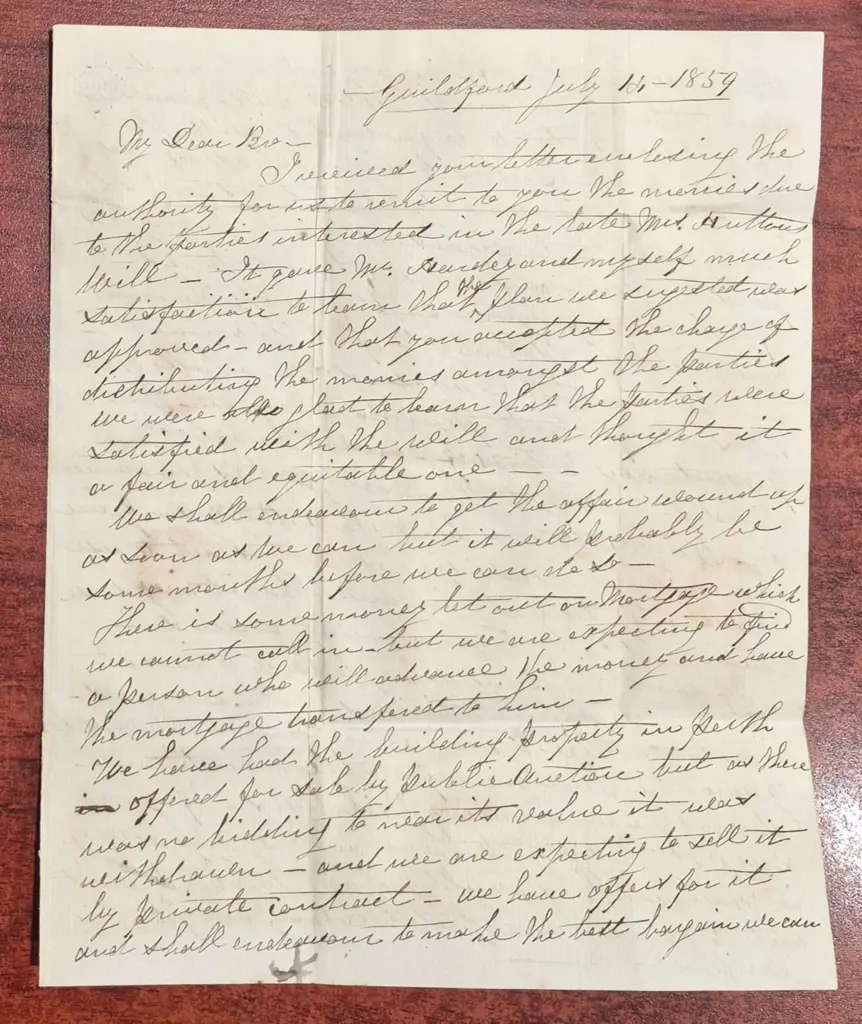 Guildford July 14 - 1859
My Dear Bro -
I received your letter enclosing the
authority for us to remit to you the monies due
to the parties interested in the late Mrs. Huttons
Will - It gave Mr. Hardey and myself much
satisfaction to learn that the plan we sugested was
approved - and that you accepted the charge of
distributing the monies amongst the parties
we were also glad to learn that the parties were
satisfied with the will and thought it
a fair and equitable one - -
We shall endeavour to get the affair wound up
as soon as we can but it will probably be
some months before we can do so -
There is some money let out on Mortgage which
we cannot call in - but we are expecting to find
a person who will advance the money and have
the mortgage transfered to him -
We have had the building property in Perth
in offered for sale by public Auction but as there
was no bidding to near its value it was
withdrawen - and we are expecting to sell it
by private contract - we have offers for it
and shall endeavour to make the best bargain we can